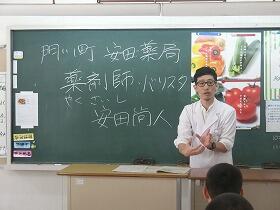 門い町 安田薬局
薬剤師・バリスタ
やくざいし
安田尚人